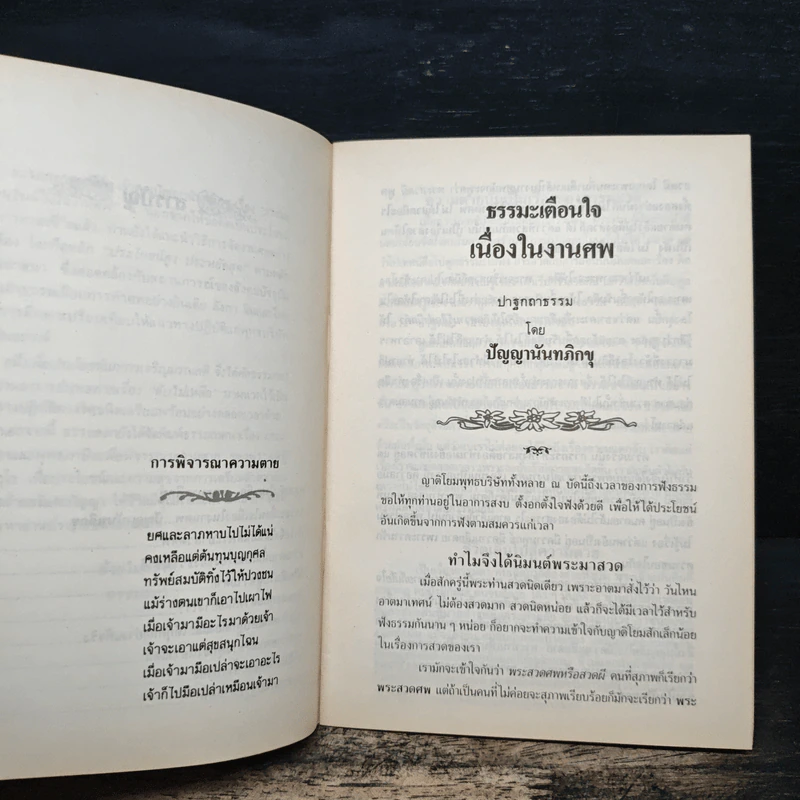 การพิจารณาความตาย
ยศและลาภหาบไปไม่ได้แน่
คงเหลือแต่ต้นทุนบุญกุศล
ทรัพย์สมบัติทิ้งไว้ให้ปวงชน
แม้ร่างตนเขาก็เอาไปเผาไฟ
เมื่อเจ้ามามีอะไรมาด้วยเจ้า
เจ้าจะเอาแต่สุขสนุกไฉน
เมื่อเจ้ามามือเปล่าจะเอาอะไร
เจ้าก็ไปมือเปล่าเหมือนเจ้ามา
ธรรมะเตือนใจ
เนื่องในงานศพ
ปาฐกถาธรรม
โดย
ปัญญานันทภิกขุ
ญาติโยมพุทธบริษัททั้งหลาย ณ บัดนี้ถึงเวลาของการฟังธรรม
ขอให้ทุกท่านอยู่ในอาการสงบ ตั้งอกตั้งใจฟังด้วยดี เพื่อให้ได้ประโยชน์
อันเกิดขึ้นจากการฟังตามสมควรแก่เวลา
ทำไมจึงได้นิมนต์พระมาสวด
เมื่อสักครู่นี้พระท่านสวดนิดเดียว เพราะอาตมาสั่งไว้ว่า วันไหน
อาตมาเทศน์ ไม่ต้องสวดมาก สวดนิดหน่อย แล้วก็จะได้มีเวลาไว้สำหรับ
ฟังธรรมกันนาน ๆ หน่อย ก็อยากจะทำความเข้าใจกับญาติโยมสักเล็กน้อย
ในเรื่องการสวดของเรา
เรามักจะเข้าใจกันว่า พระสวดศพหรือสวดผี คนที่สุภาพก็เรียกว่า
พระสวดศพ แต่ถ้าเป็นคนที่ไม่ค่อยจะสุภาพเรียบร้อยก็มักจะเรียกว่า พระ